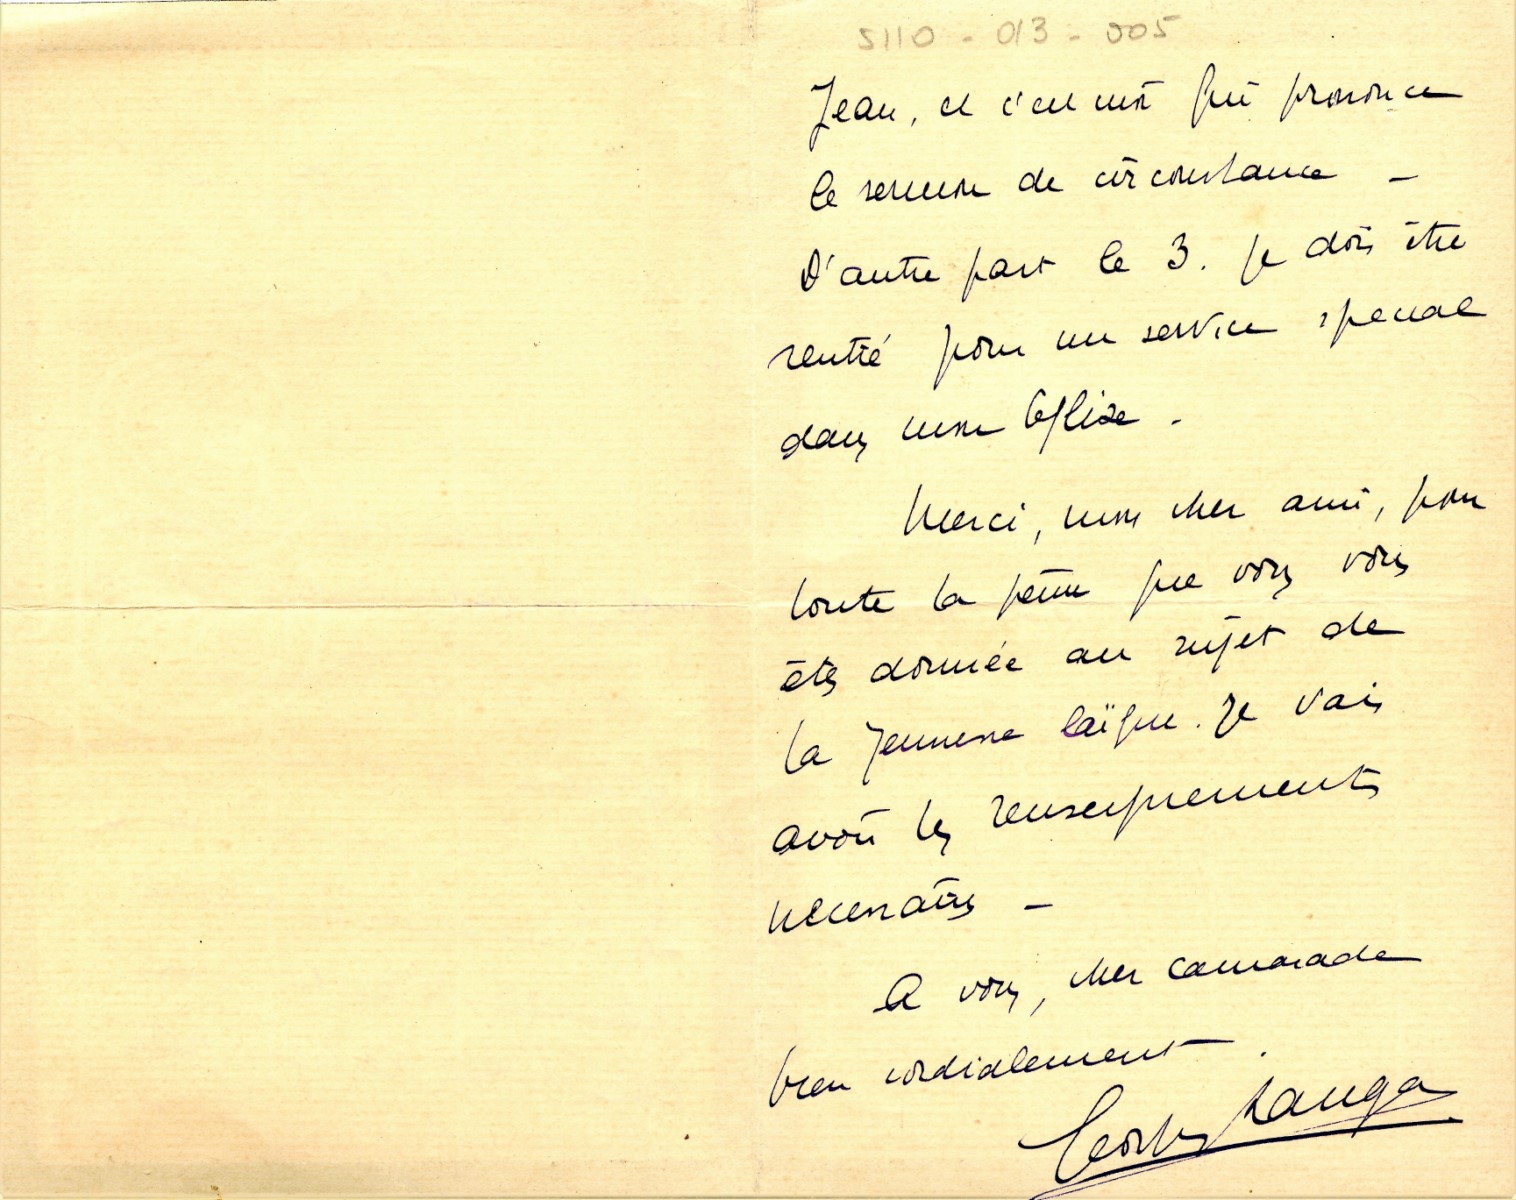 5110 - 013 - 005
Jean, et c'est moi qui prononce
le sermon de circonstance -
D'autre part le 3. je dois être
rentré pour un service special
dans mon Eglise -
Merci, mon cher ami, pour
toute la peine que vous vous
êtes donnée au sujet de
la Jeunesse laïque. Je vais
avoir les renseignements
nécessaires -
A vous, cher camarade
bien cordialement.
Georges Lauga